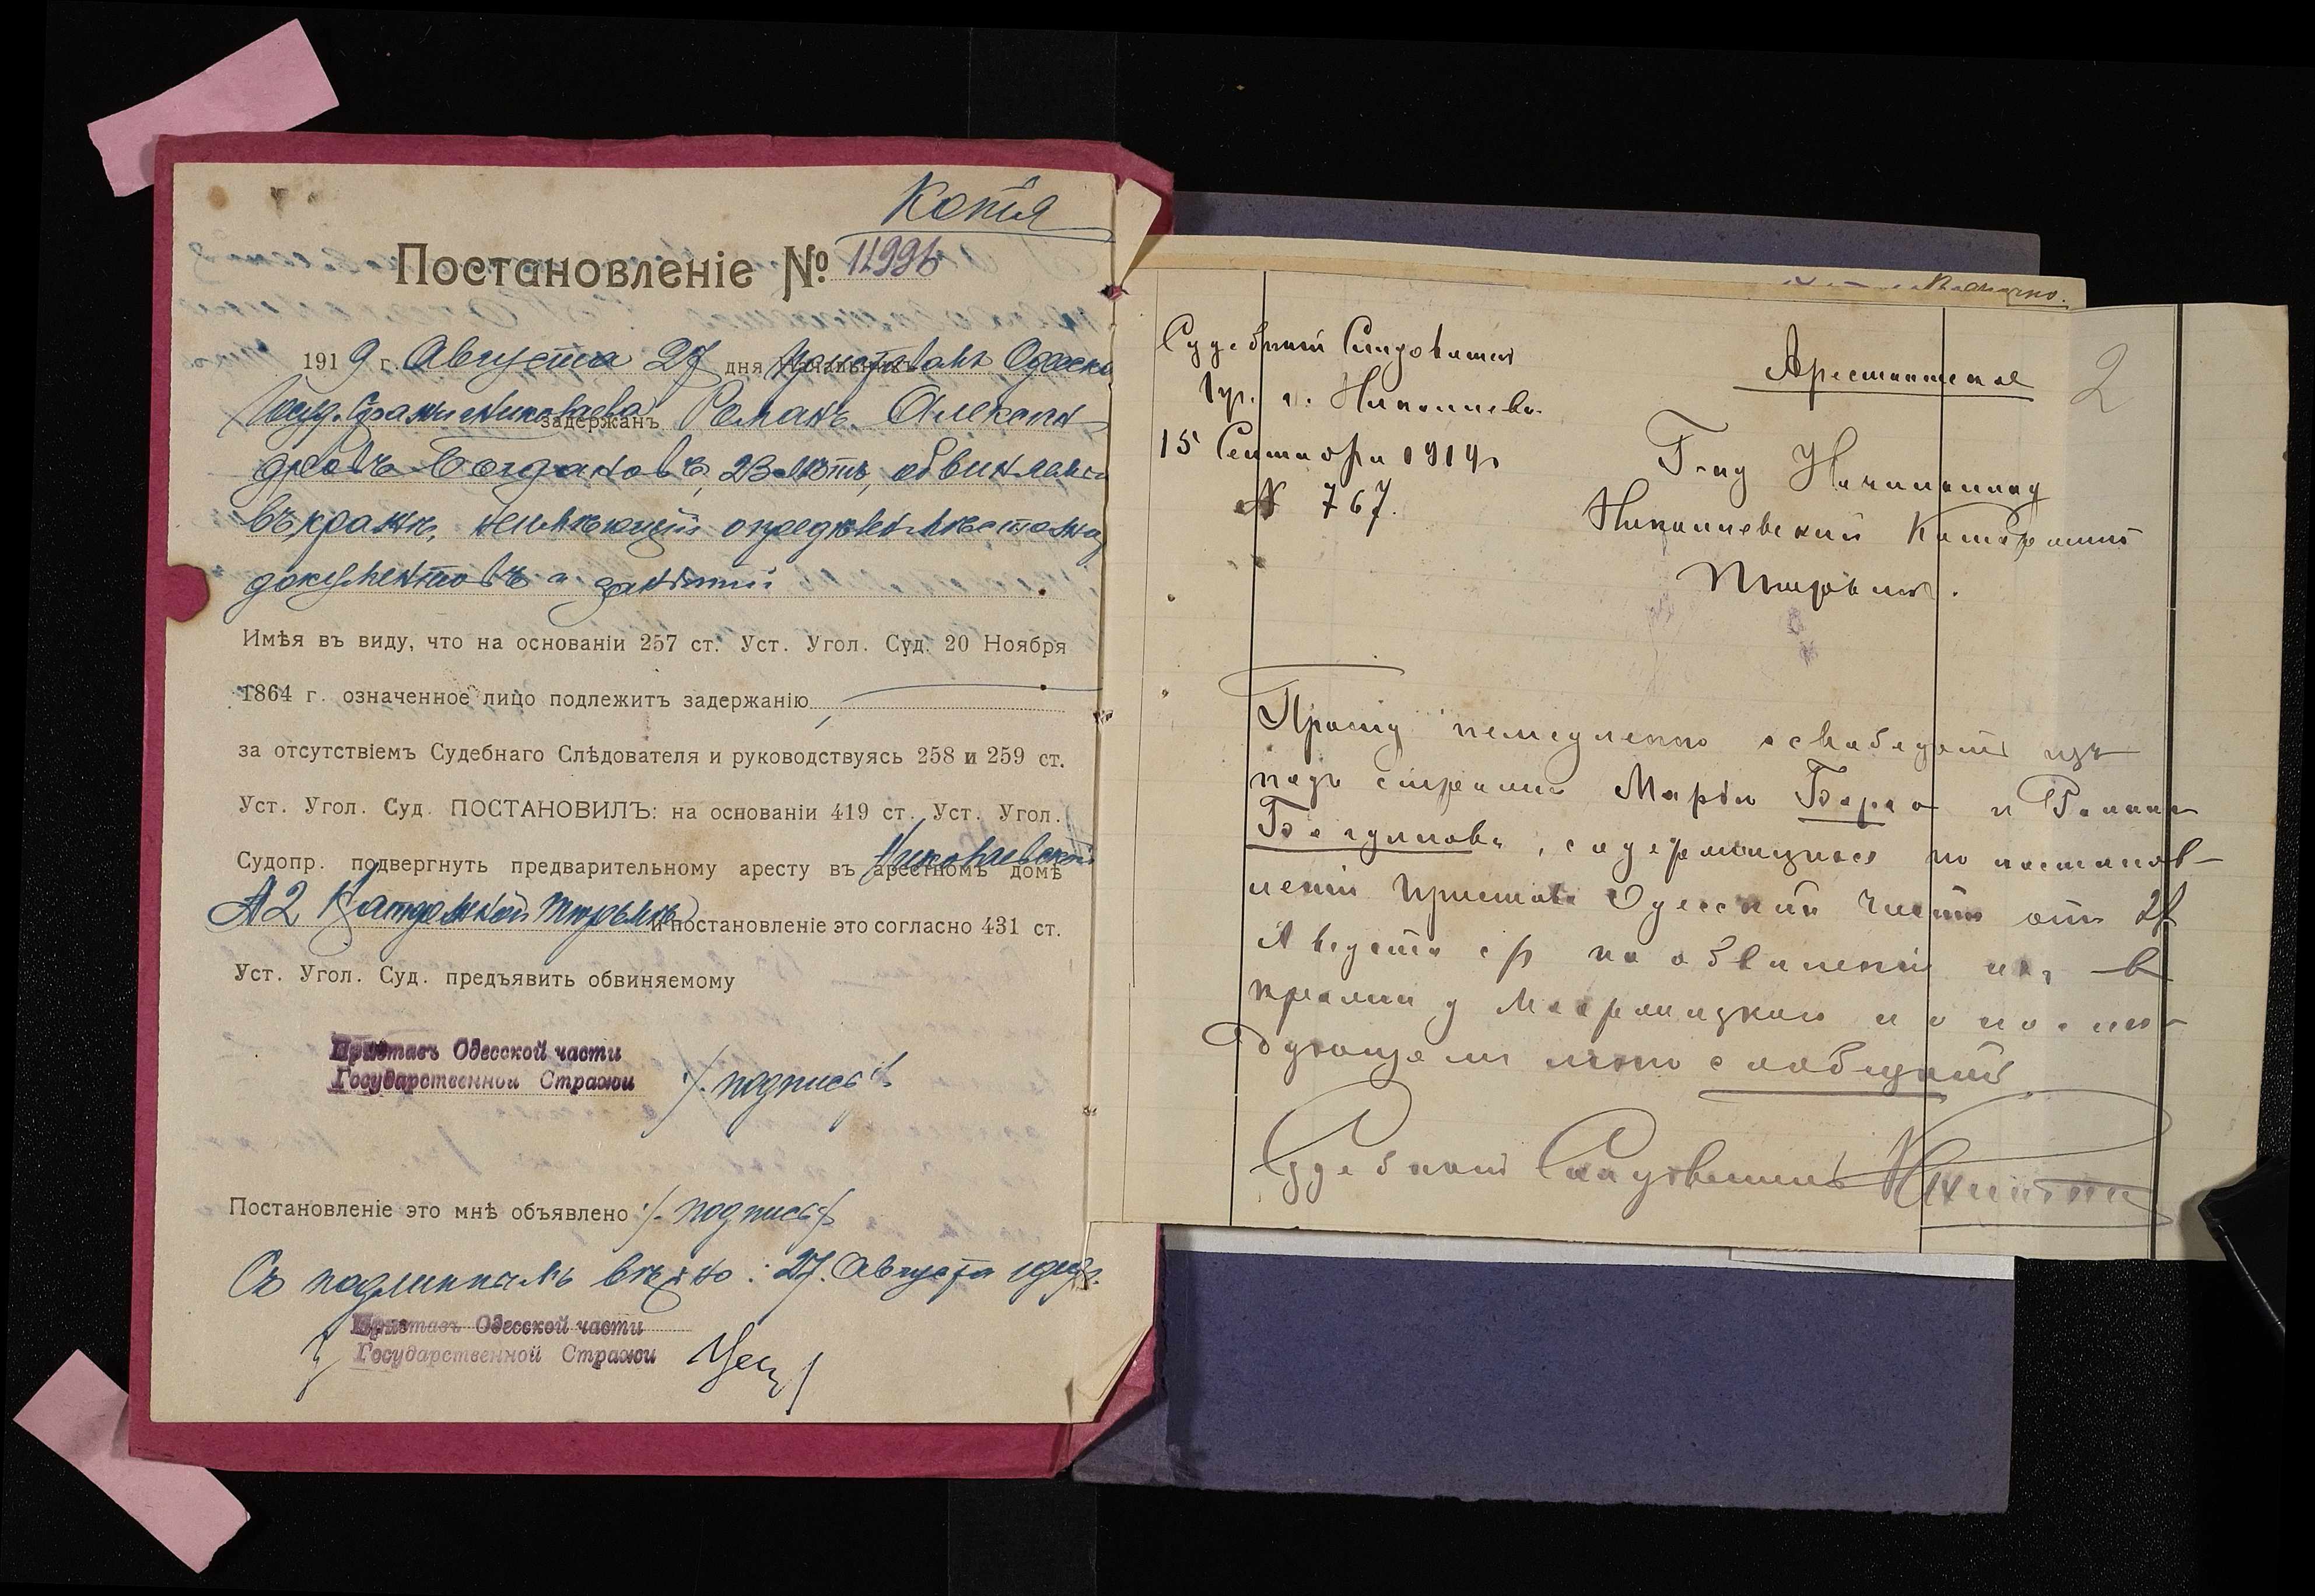 Копія
Постановленіе № 11996
1919 г. Августа 27 дня Приставомъ Одесск
Госуд. Стражи Николаева задержанъ Романъ Алексан
дровъ Богдановъ, 23 лѣтъ, обвиняем
въ кражѣ, неимѣющій опредѣлен мѣстожи
документовъ и занятій
Имѣя въ виду, что на основаніи 257 ст. Уст. Угол. Суд. 20 Ноября
1864 г. означенное лицо подлежитъ задержанію
за отсутствіемъ Судебнаго Слѣдователя и руководствуясь 258 и 259 ст.
Уст. Угол. Суд. ПОСТАНОВИЛЪ: на основаніи 419 ст. Уст. Угол.
Судопр. подвергнуть предварительному аресту въ арестномъ домѣ Николаевской
Каторжной тюрьмѣ и постановленіе это согласно 431 ст.
Уст. Угол. Суд. предъявить обвиняемому
Приставъ Одесской части
Государственной Стражи /подпись/
Постановленіе это мнѣ объявлено /подпись/
Съ подлиннымъ вѣрно: 27 Августа 1919 г.
Приставъ Одесской части
Государственной Стражи
Судебный Слѣдователь
гор. Николаева
15 Сентября 1919
№ 767.
Арестантское
2
Г-ну Начальнику
Николаевской Каторжной
Тюрьмы.
Прошу немедленно освободить изъ
подъ стражи Марію и Романа
Богданова, содержащихся по постанов-
ленію Пристава Одесской части отъ 27
Августа с/г по обвиненію ихъ в
кражи у и о послѣ-
дующемъ мнѣ сообщить
Судебный Слѣдователь